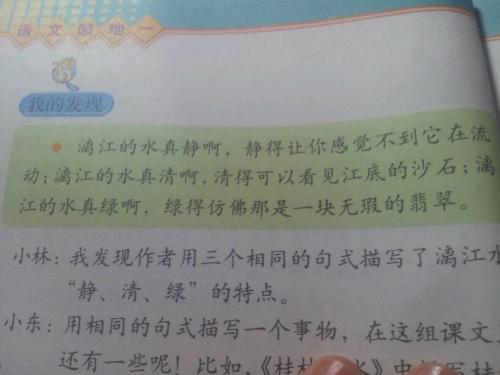 语文园地一
我的发现
◆ 漓江的水真静啊，静得让你感觉不到它在流
动；漓江的水真清啊，清得可以看见江底的沙石；漓
江的水真绿啊，绿得仿佛那是一块无瑕的翡翠。
小林：我发现作者用三个相同的句式描写了漓江水
“静、清、绿”的特点。
小东：用相同的句式描写一个事物，在这组课文
还有一些呢！比如，《桂林 水》中